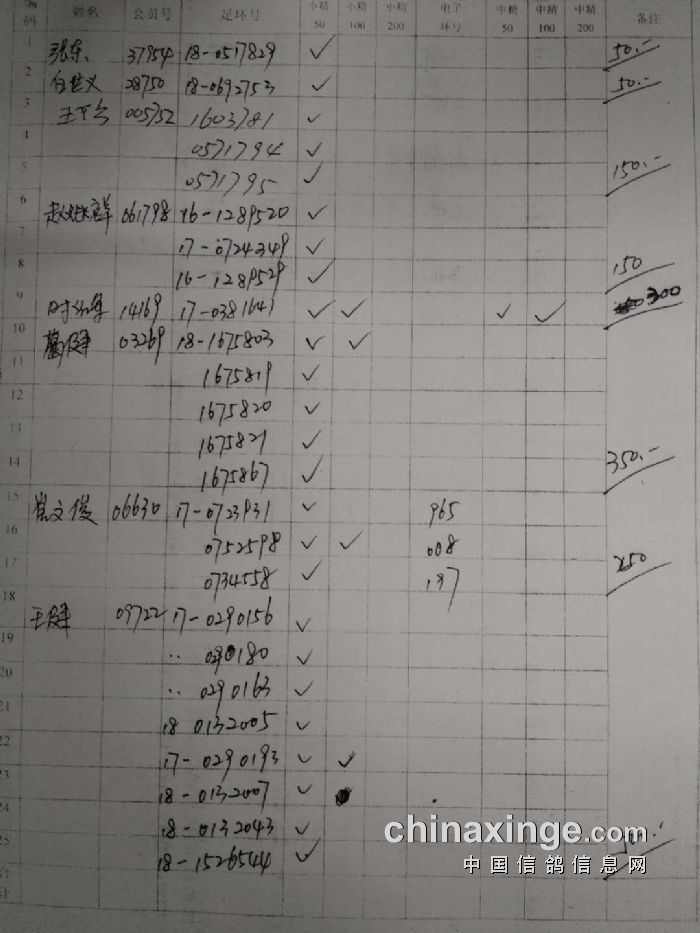 编码 姓名 会员号 足环号 小精50 小精100 小精200 电子环号 中精50 中精100 中精200 备注
1 张东 37954 18-0517829 ✓ 50.-
2 28750 18-0692753 ✓ 50.-
3 005752 1603781 ✓
4 0571794 ✓
5 0571795 ✓ 150.-
6 061798 16-1289520 ✓
7 17-0724349 ✓
8 16-1289529 ✓ 150
9 14169 17-0381641 ✓ ✓ ✓ ✓ 300
10 03269 18-1675803 ✓ ✓
11 1675819 ✓
12 1675820 ✓
13 1675821 ✓
14 1675867 ✓ 350.-
15 崔文俊 06630 17-0723931 ✓ 965
16 0752598 ✓ ✓ 008
17 0734558 ✓ 197 250
18 王健 09722 17-0290156 ✓
19 .. 0290180 ✓
20 .. 0290163 ✓
21 18 0132005 ✓
22 17-0290193 ✓ ✓
23 18-0132007 ✓
24 18-0132043 ✓
25 18-1526544 ✓
合计
chinaxinge.com
中国信鸽信息网